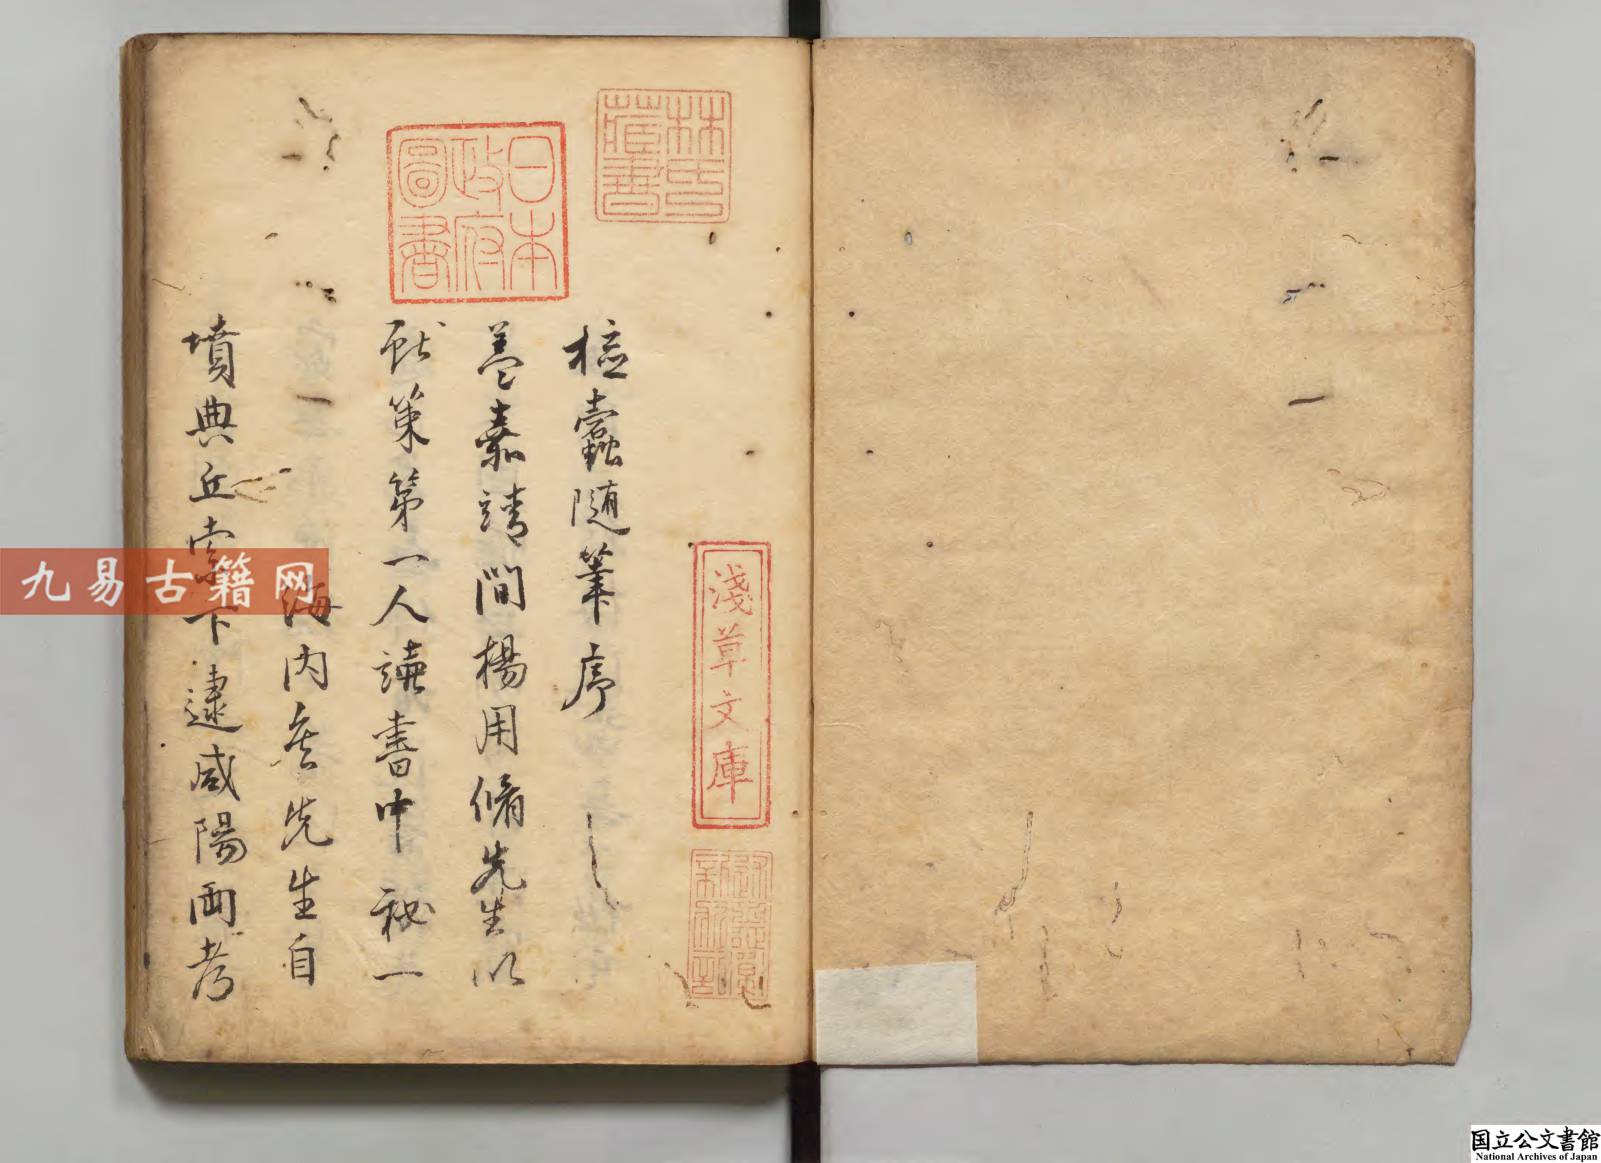 枟蠧隨筆序
蓋嘉靖間楊用脩先生以
獻策第一人讀書中祕一
海内矣先生自
墳典丘索下逮咸陽兩考
林氏藏書
日本政府圖書
淺草文庫
九易古籍网
国立公文書館
National Archives of Japan